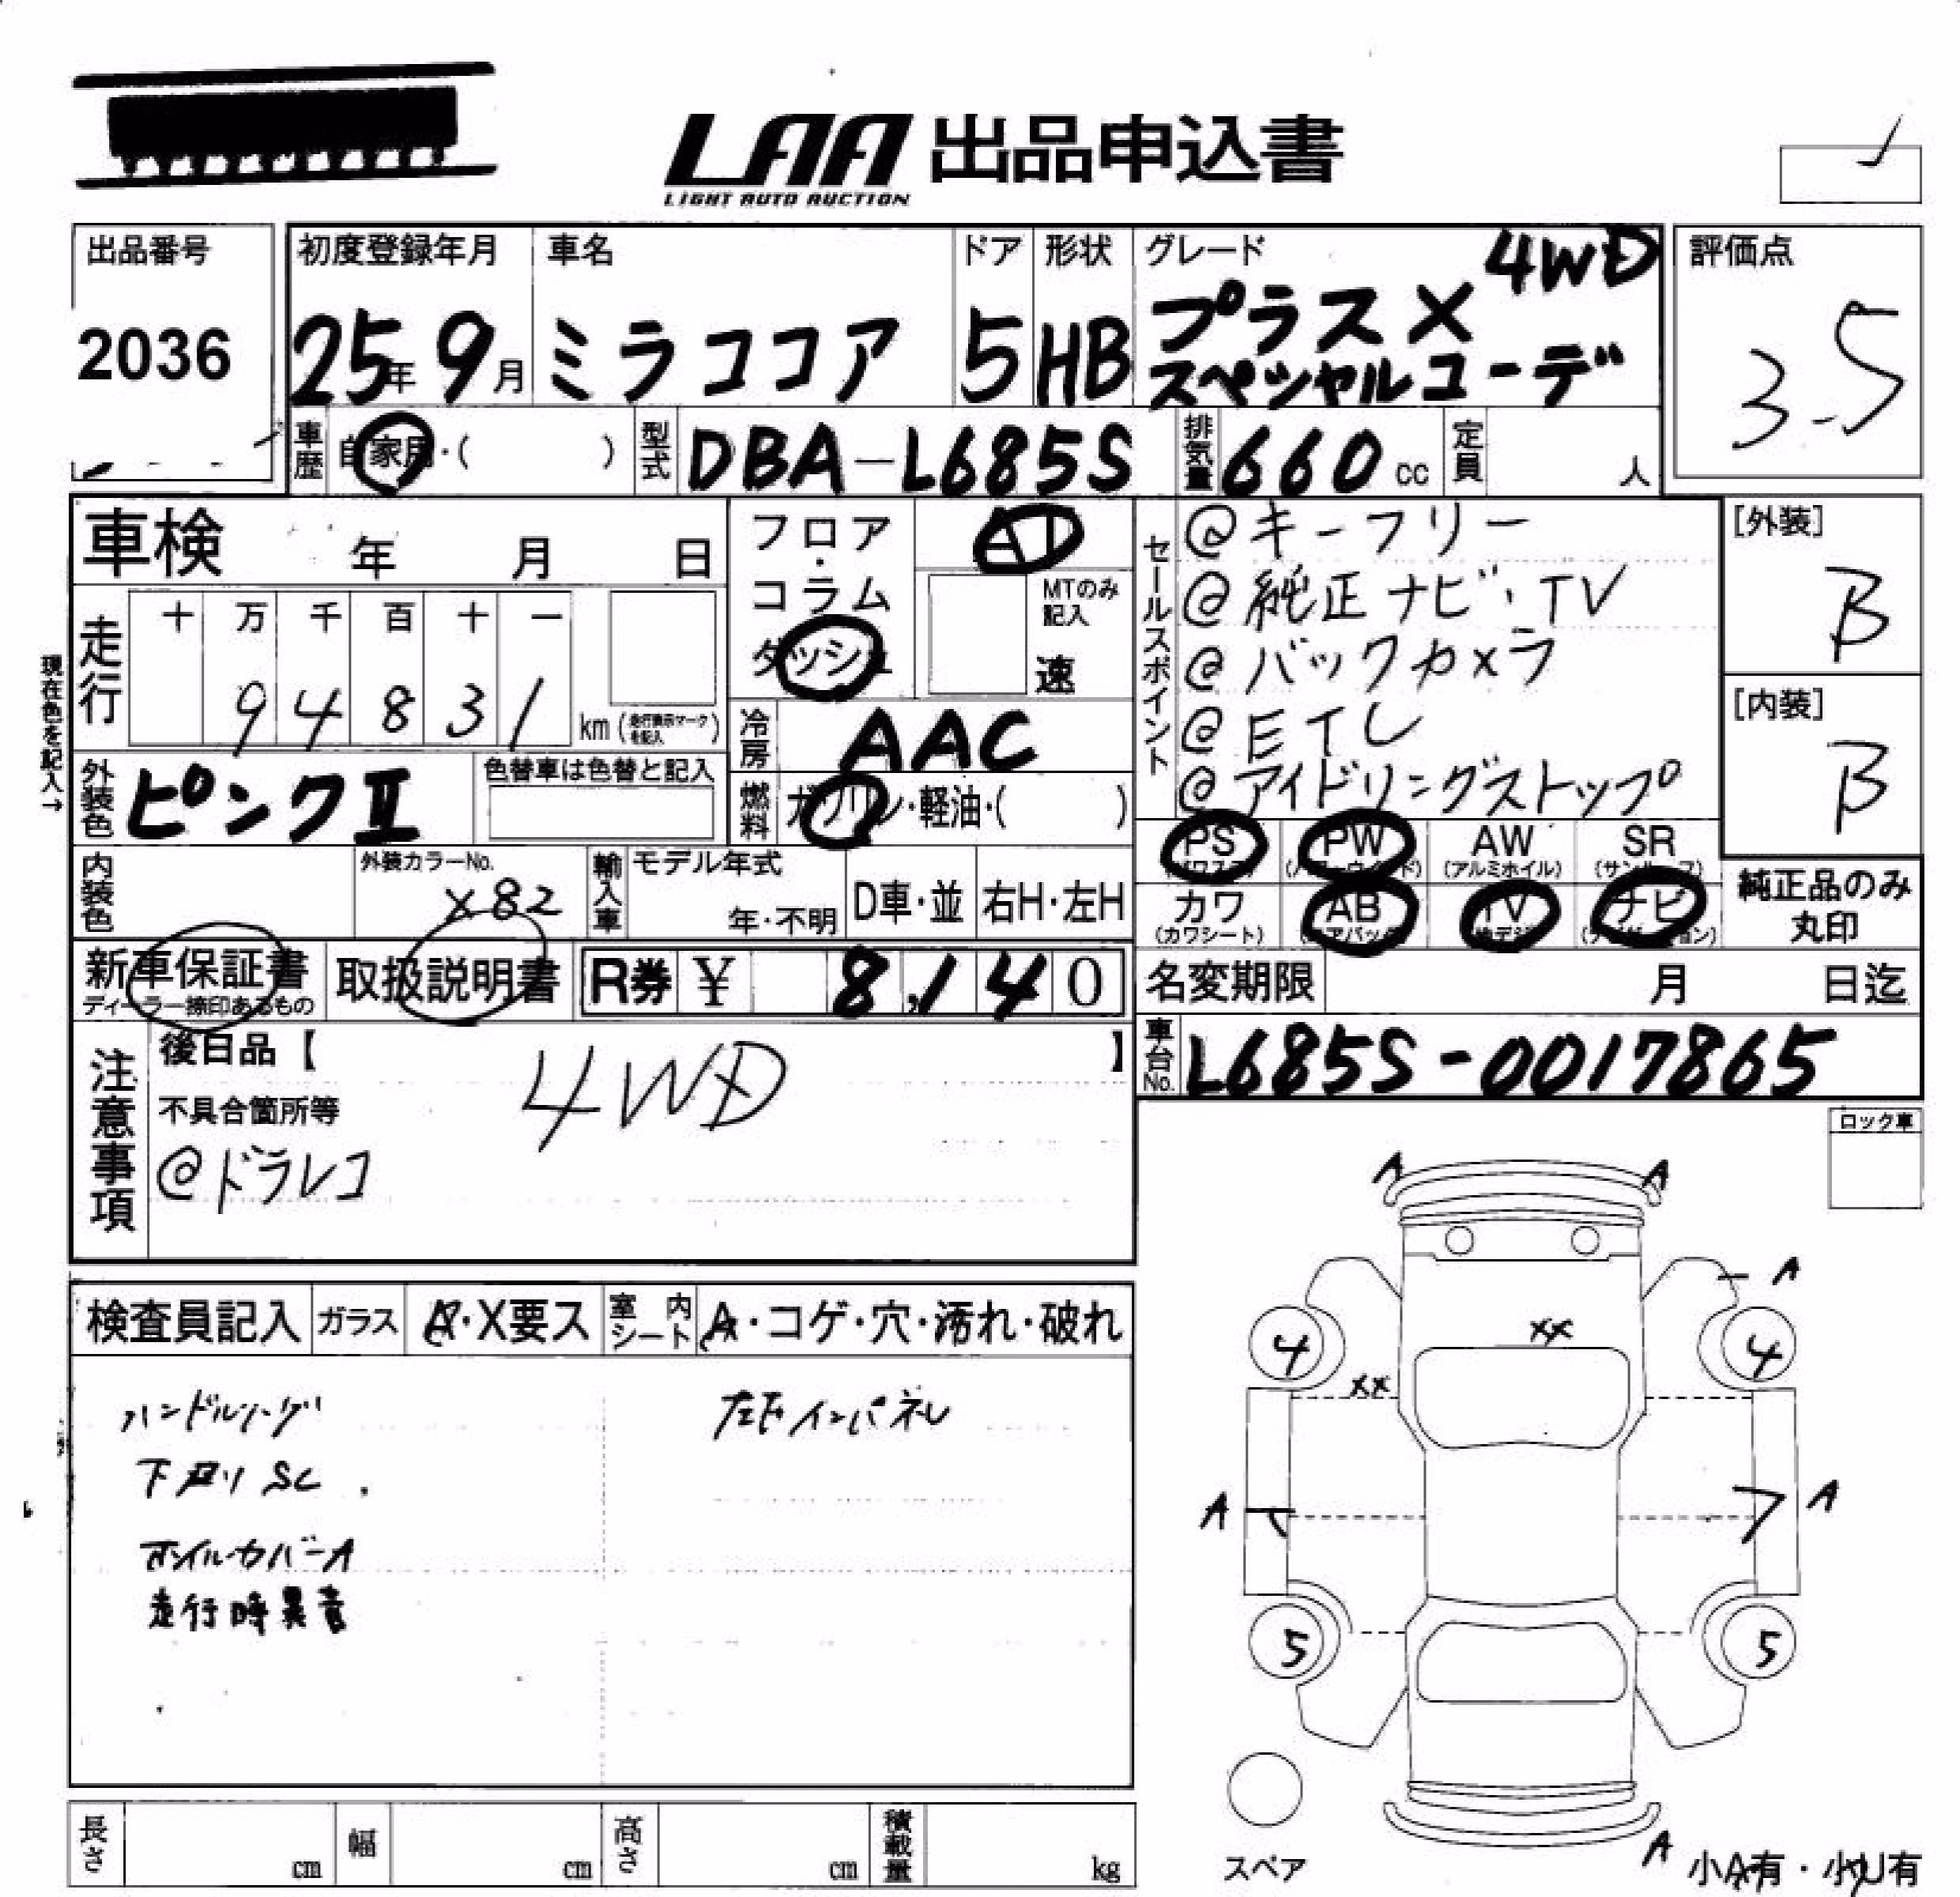 LAA 出品申込書
LIGHT AUTO AUCTION
出品番号
2036
初度登録年月
25年9月
車名
ミラココア
ドア
5
形状
HB
グレード
4WD
プラスX
スペシャルコーデ
評価点
3.5
車歴
自家用・( )
型式
DBA-L685S
排気量
660 cc
定員
人
車検 年 月 日
フロア・コラム
ダッシュ
AT
MTのみ記入
速
セールスポイント
@キーフリー
@純正ナビ・TV
@バックカメラ
@ETC
@アイドリングストップ
[外装]
B
[内装]
B
現在色を記入→
走行
十 万 千 百 十 一
9 4 8 3 1
km (走行表示マークを記入)
冷房
AAC
外装色
ピンクII
色替車は色替と記入
燃料
ガソリン・軽油・( )
内装色
外装カラーNo.
X82
輸入車
モデル年式
年・不明
D車・並
右H・左H
PS
PW
AW
(アルミホイル)
SR
(サンルーフ)
カワ
(カワシート)
AB
(エアバック)
TV
ナビ
純正品のみ
丸印
新車保証書
ディーラー捺印あるもの
取扱説明書
R券 ¥ 8,140
名変期限 月 日迄
車台No.
L685S-0017865
注意事項
後日品【 】
4WD
不具合箇所等
@ドラレコ
ロック車
検査員記入
ガラス
A・X要ス
室内シート
A・コゲ・穴・汚れ・破れ
下回りSC
ホイルカバーA
走行時異音
A A
A
XX
4 4
XX
A A
5 5
A
スペア
小A有・小U有
長さ cm
幅 cm
高さ cm
積載量 kg